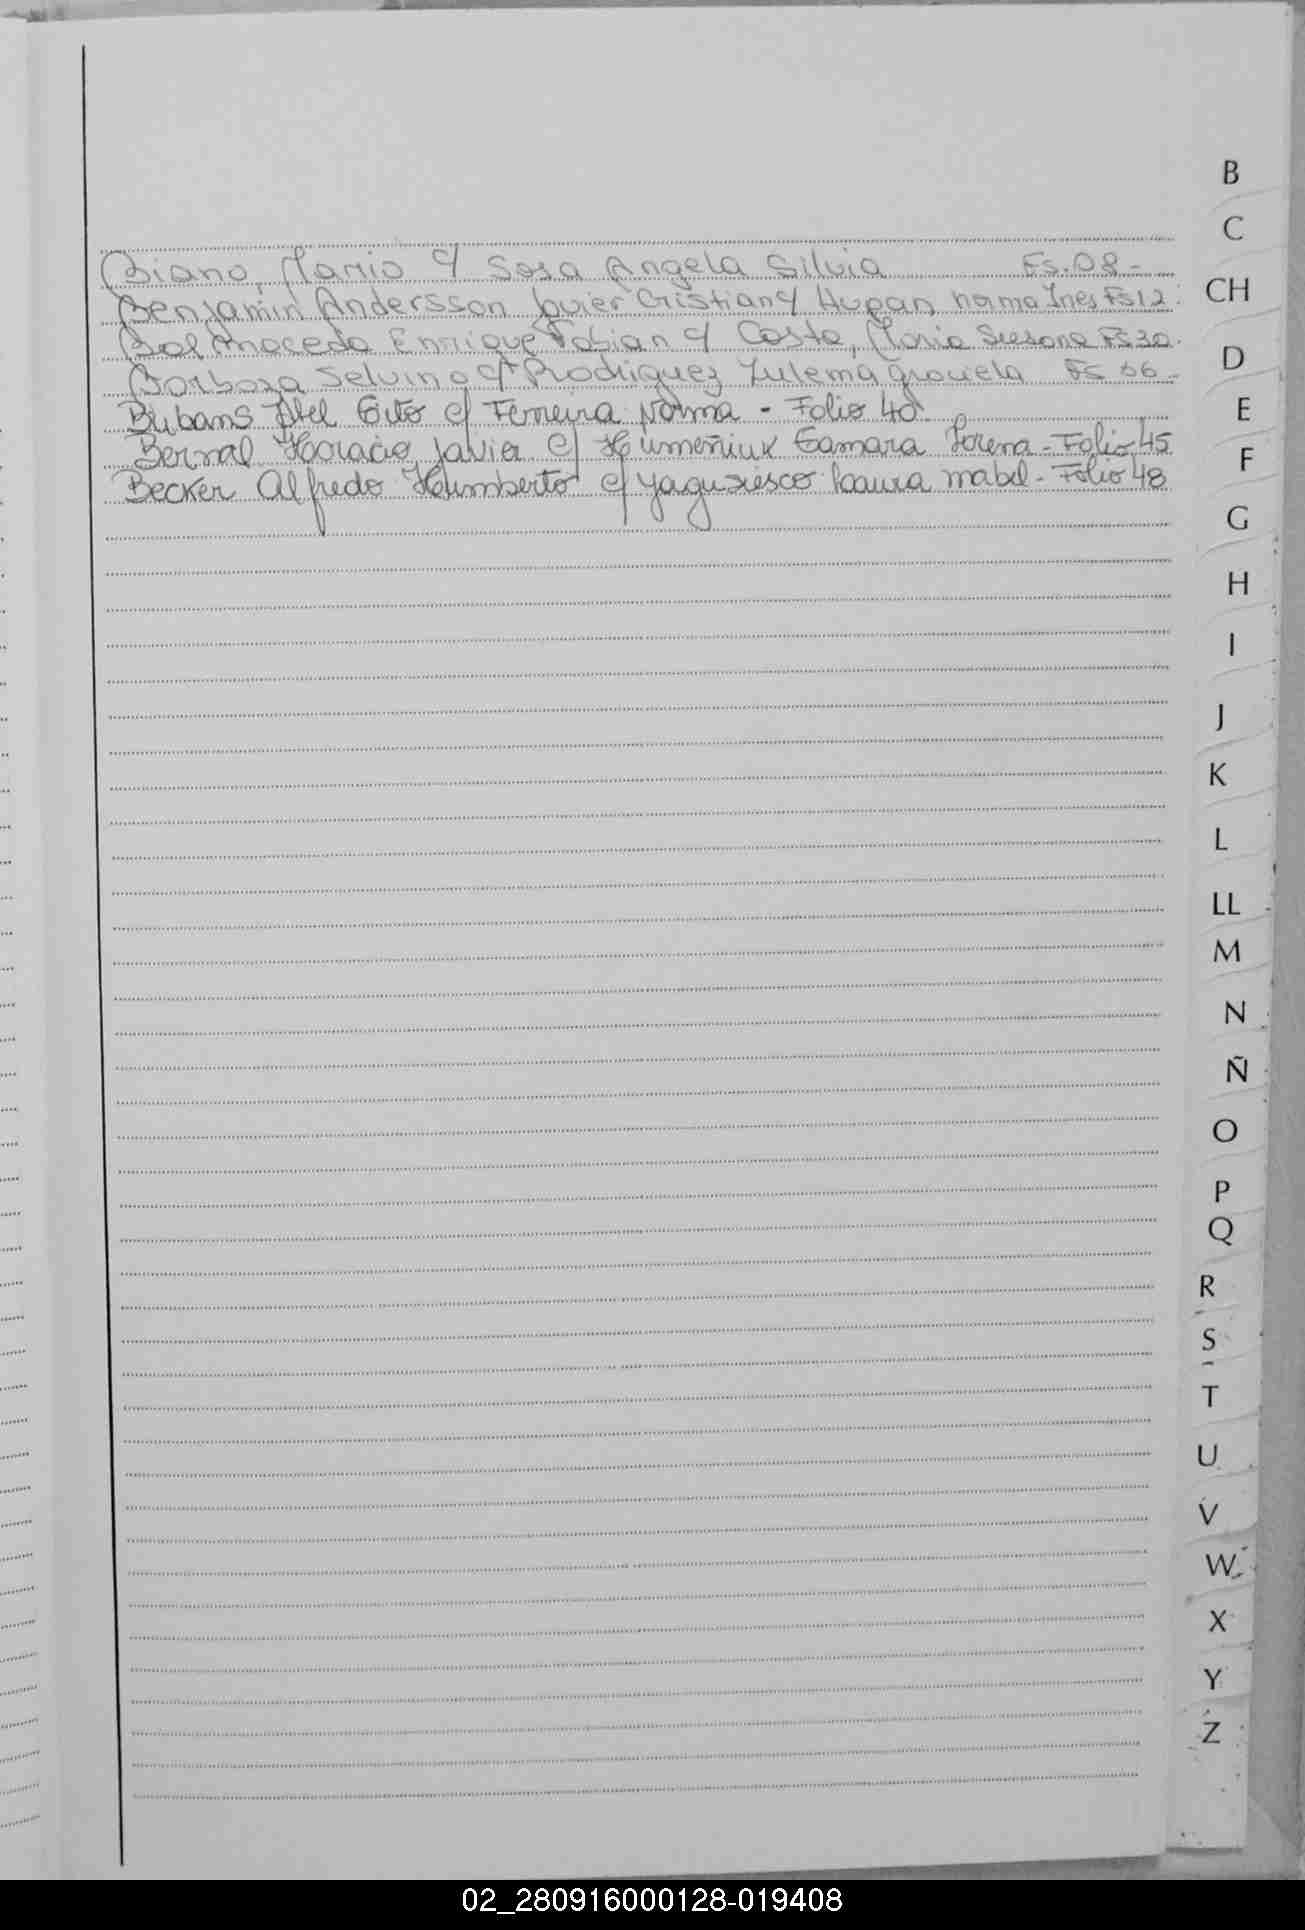 Biano, Mario c/ Sosa Angela Silvia Fs. 08-
Benjamin Andersson Javier Cristian c/ Hupan, norma Ines Fs 12.
Balmaceda Enrique Fabian c/ Costa, Maria Susana Fs 30.
Barboza Selvino c/ Rodriguez Zulema graciela Fs 06-
Abel c/ Ferreira Norma - Folio 40
Bernal Horacio Javier c/ Humeñiuk Tamara Lorena - Folio 45
Becker Alfredo Humberto c/ Laura mabel - Folio 48
B
C
CH
D
E
F
G
H
I
J
K
L
LL
M
N
Ñ
O
P
Q
R
S
T
U
V
W
X
Y
Z
02_280916000128-019408